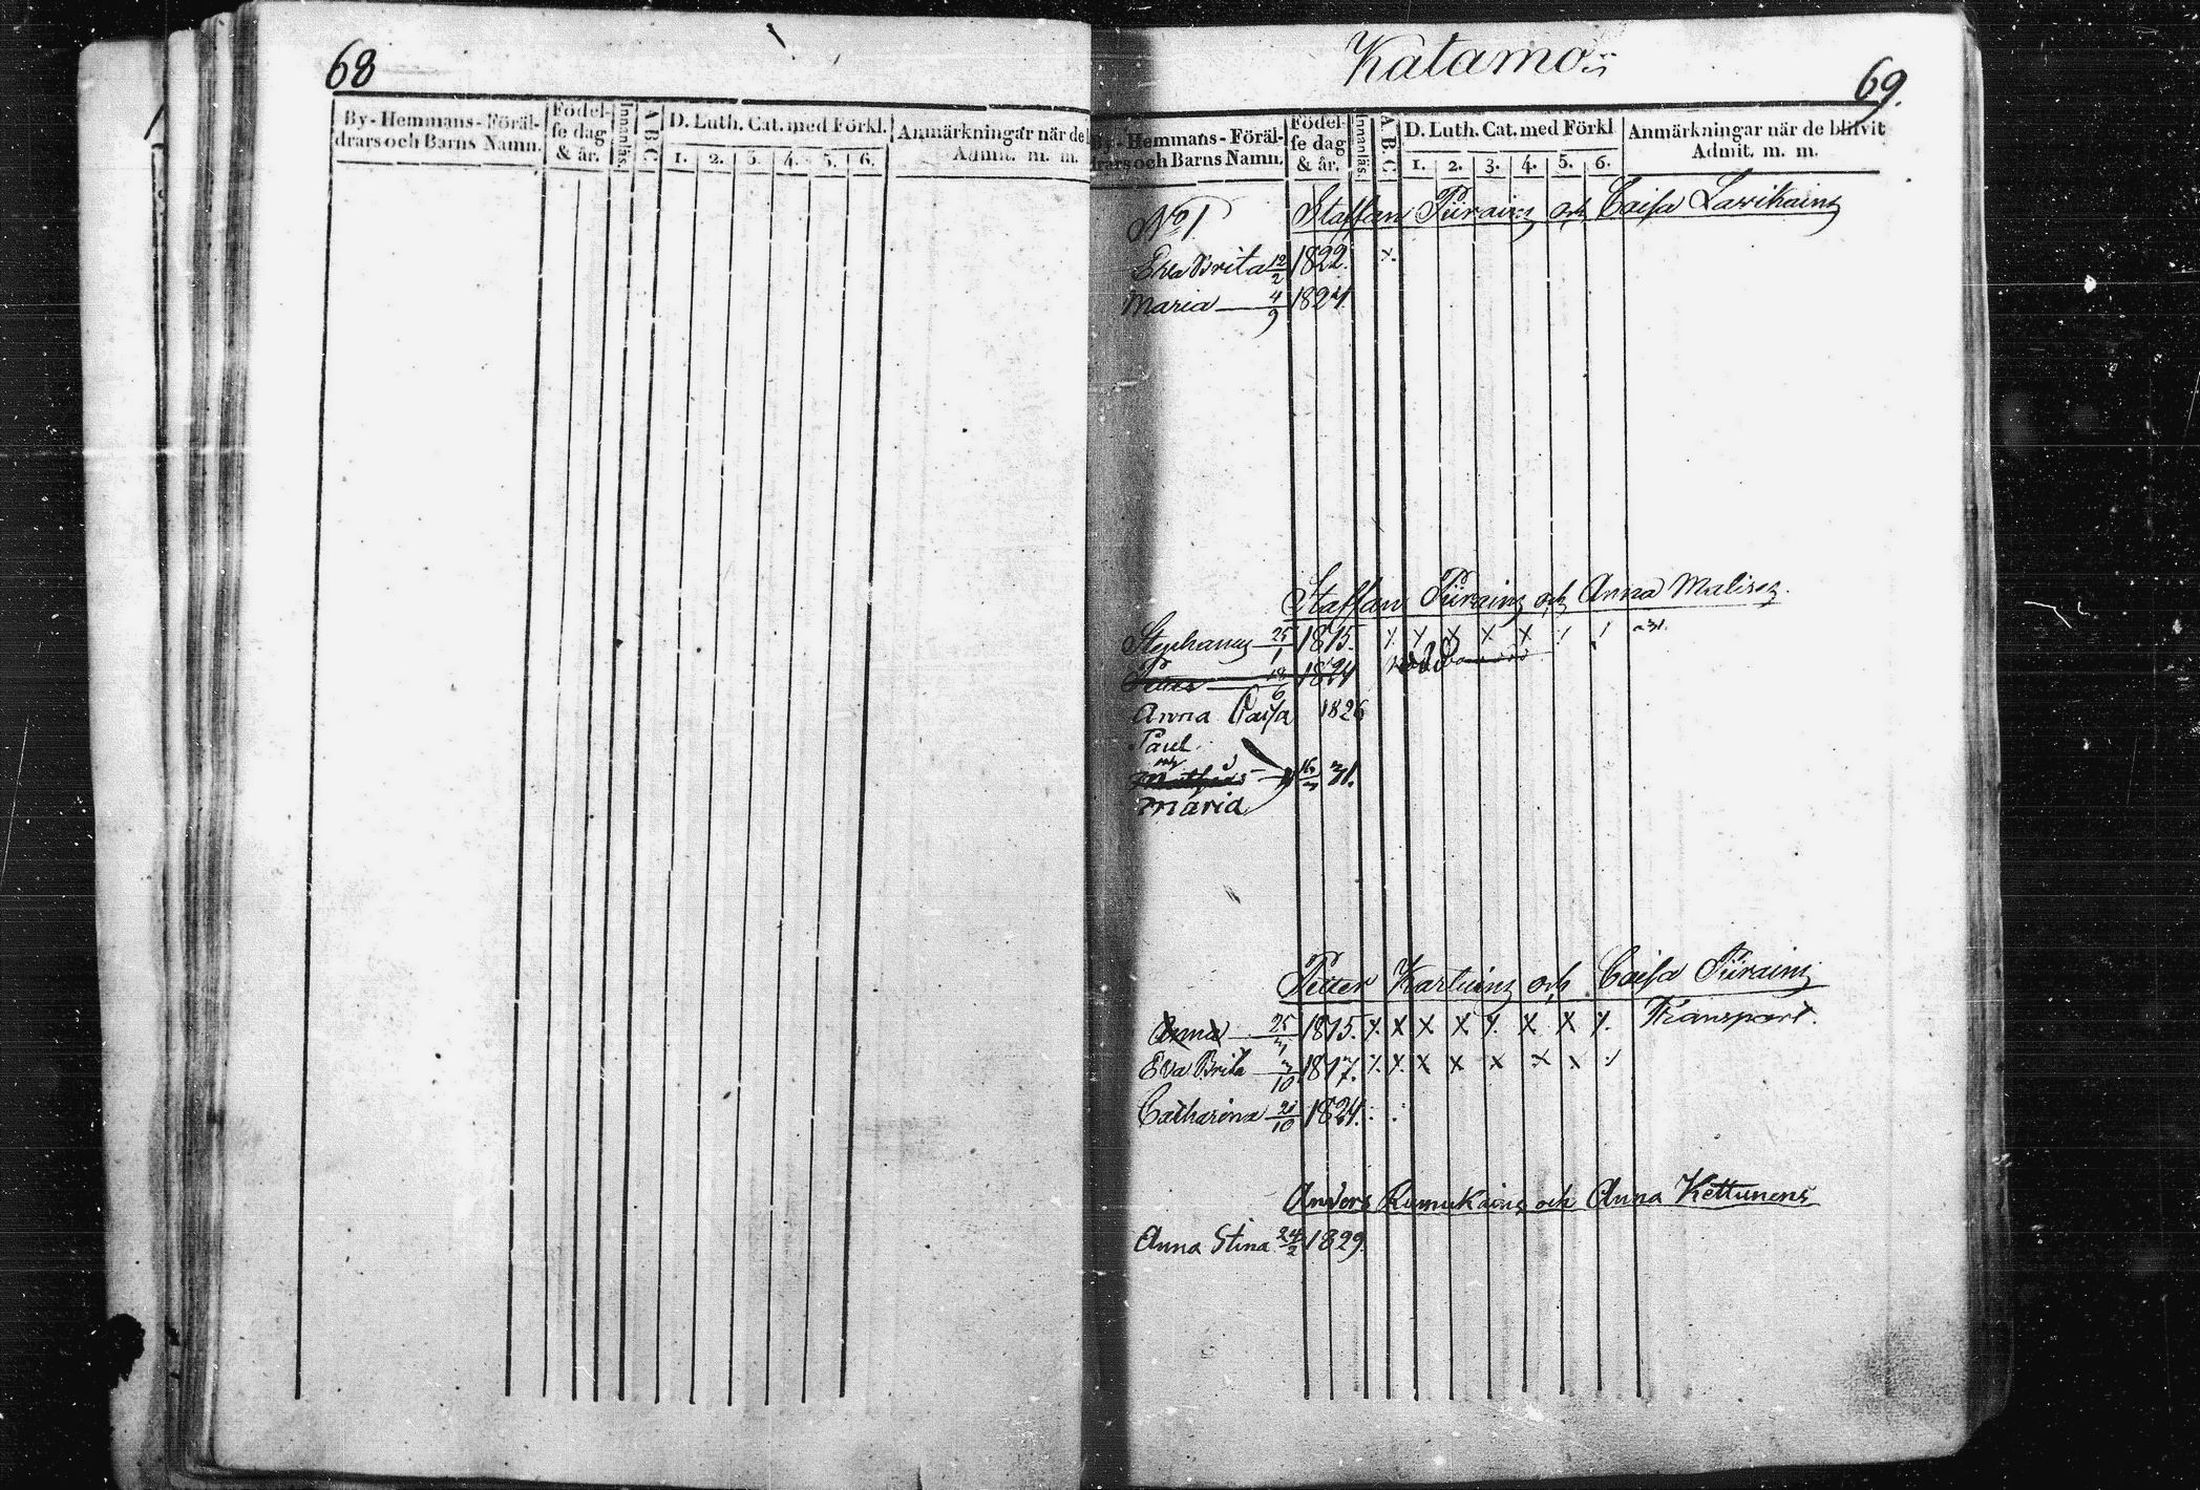 68
By-Hemmans-Föräl-
drars och Barns Namn.
Födel-
se dag
& år.
Innanläs.
A B C
D. Luth. Cat. med Förkl.
1. 2. 3. 4. 5. 6.
Anmärkningar när de
Admit. m. m.
Katamo
69.
By-Hemmans-Föräl-
drars och Barns Namn.
Födel-
se dag
& år.
Innanläs.
A B C
D. Luth. Cat. med Förkl
1. 2. 3. 4. 5. 6.
Anmärkningar när de blifvit
Admit. m. m.
No 1 Staffan Pürain och Caisa Lavikain
Eva Brita 12/2 1822. x
Maria 4/9 1824.
Staffan Pürain och Anna Malisen
Stephanus 25/1 1815. x x x x x
18/6 1824
Anna Caisa 1826
Paul
Mathias 31.
Maria
Petter Karluin och Caisa Pürain
Anna 25 1815. x x x x x x x x Transport.
Eva Brita 10 1817. x x x x x x x
Catharina 10 1824.
Anders Romukain och Anna Kettunens
Anna Stina 24/2 1829.